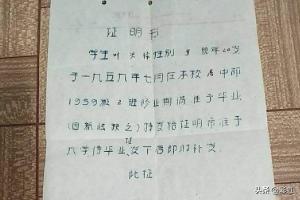 证明书
学生叶 性别男 现年20岁
于一九五九年七月在本校高中部
1959级2班修业期满准予毕业
(因新政策之)特发给证明书准予
入学得毕业文下届即补发
此证
头条@